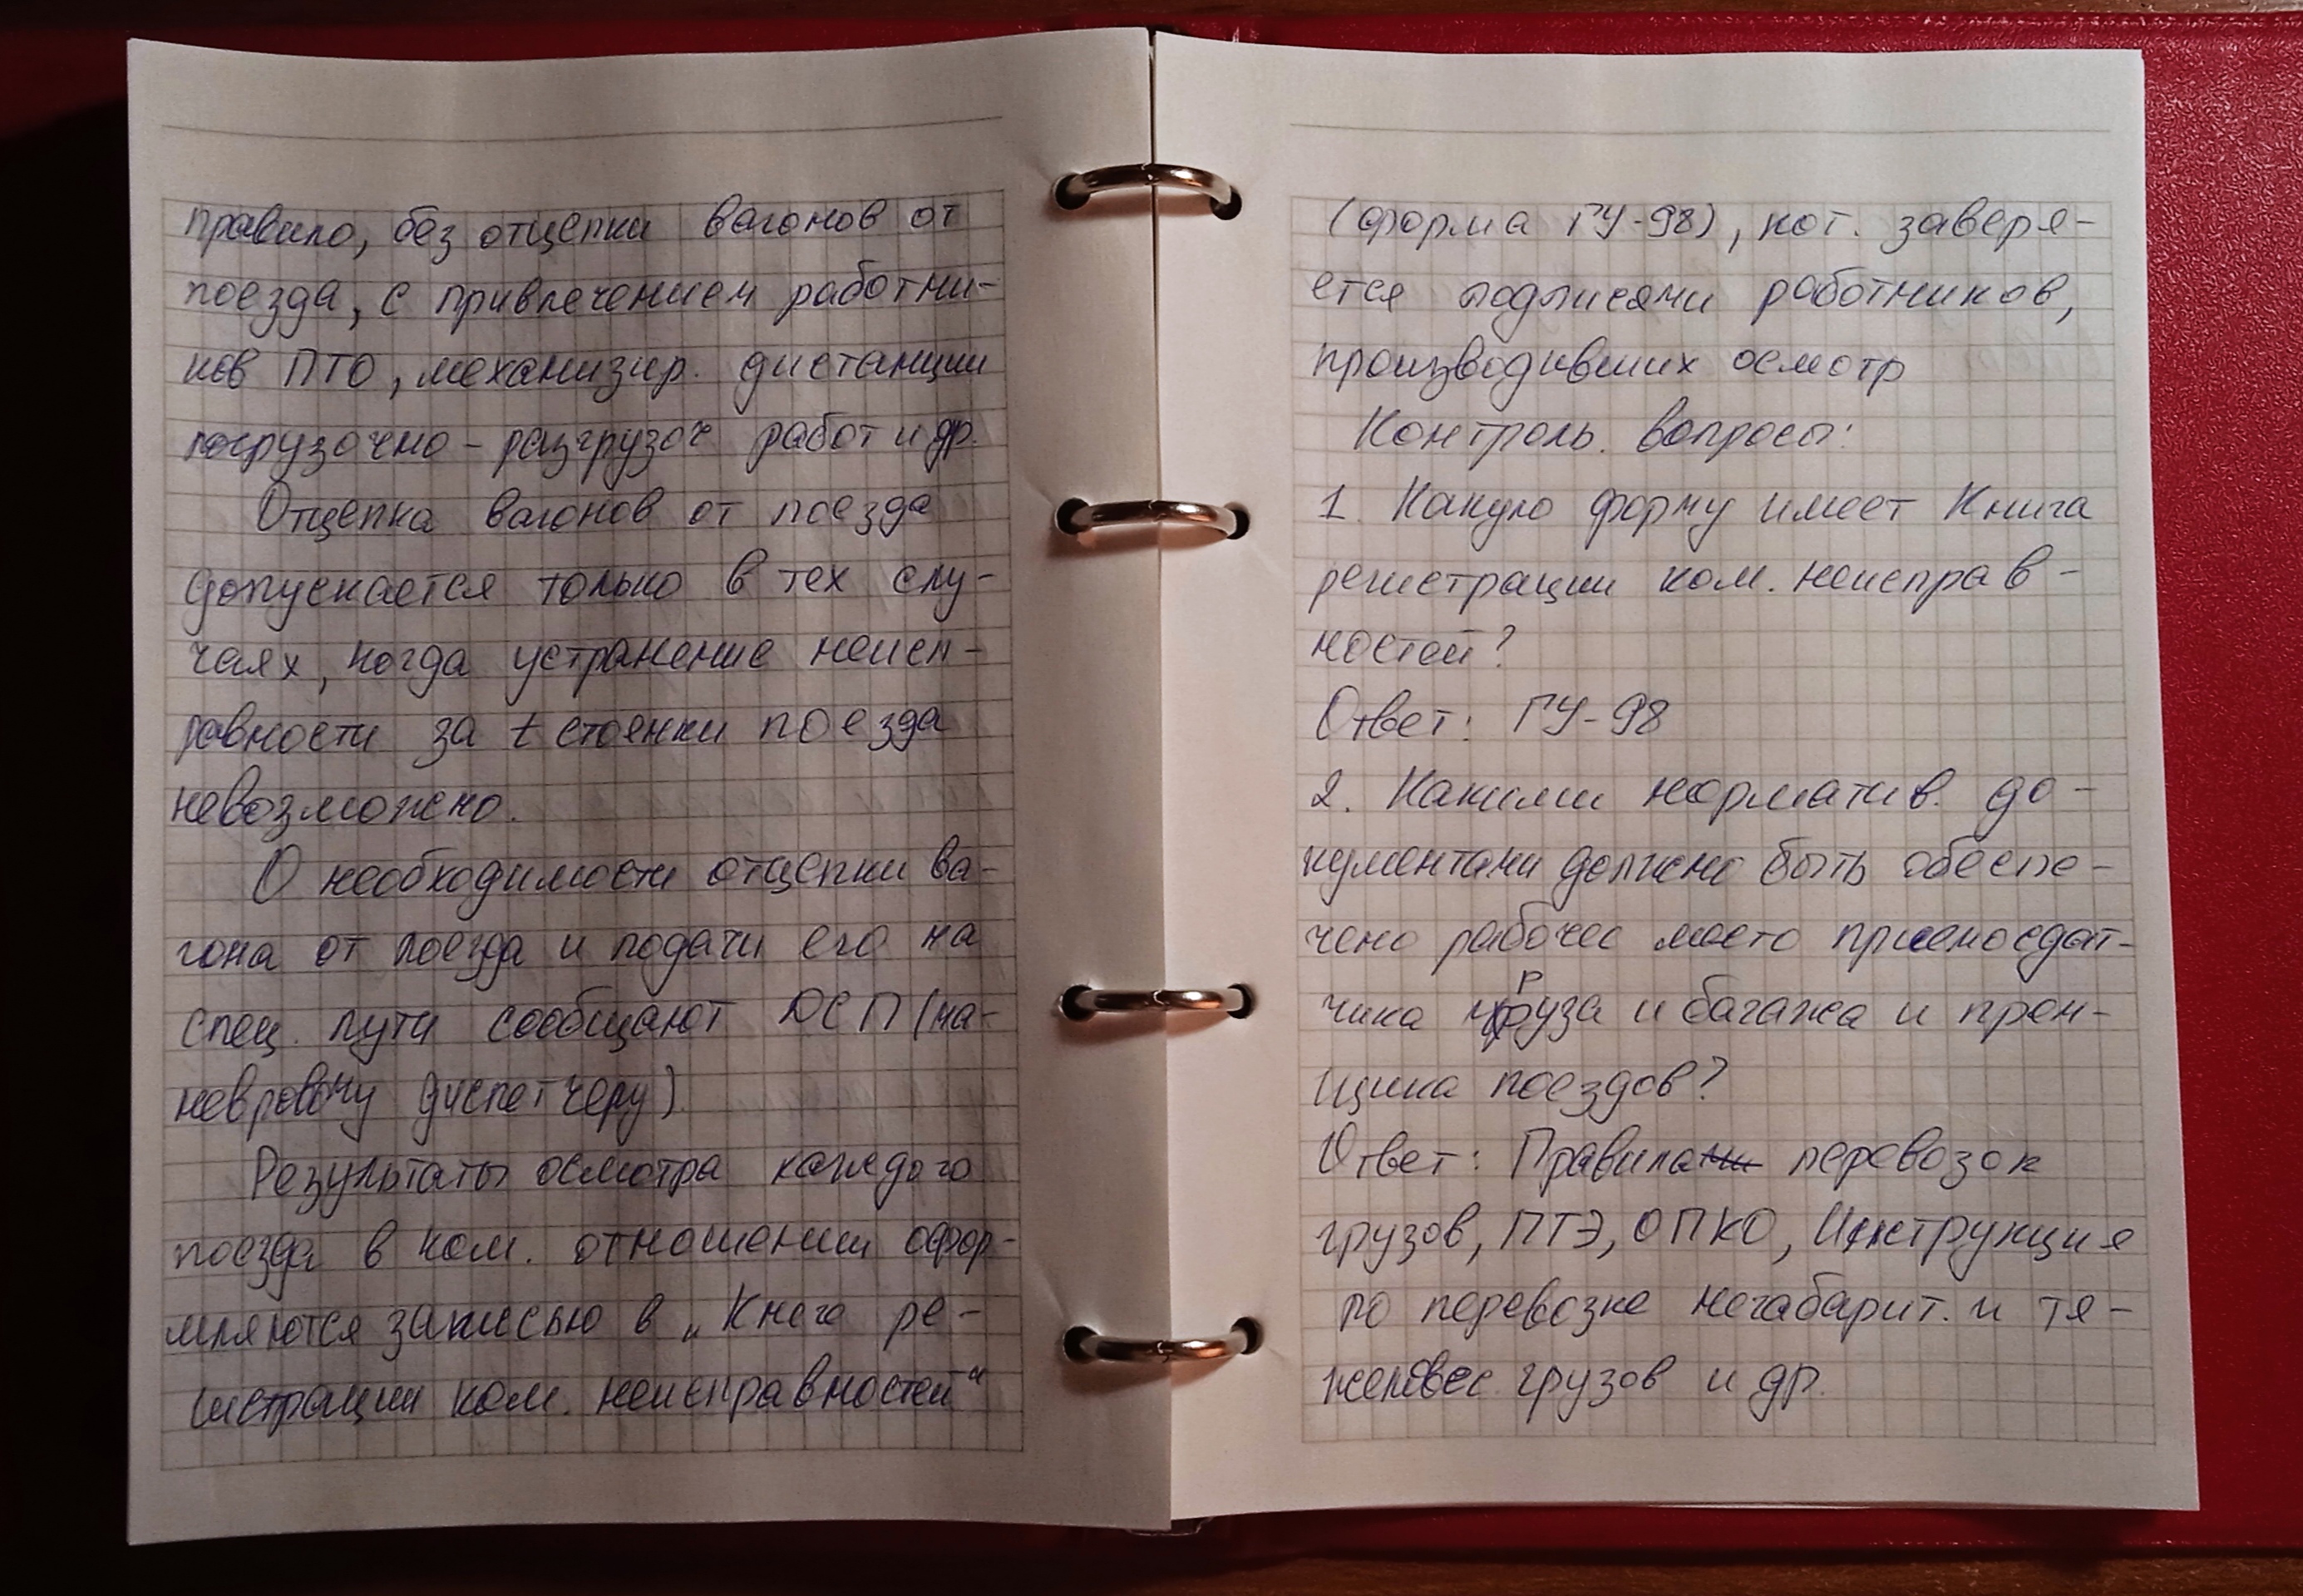 правило, без отцепки вагонов от
поезда, с привлечением работни-
ков ПТО, механизир. дистанции
погрузочно-разгрузоч работ и др.
Отцепка вагонов от поезда
допускается только в тех слу-
чаях, когда устранение неисп-
равности за t стоянки поезда
невозможно.
О необходимости отцепки ва-
гона от поезда и подачи его на
спец. пути сообщают ДСП (ма-
невровому диспетчеру)
Результаты осмотра каждого
поезда в ком. отношении офор-
мляются записью в „Книге ре-
гистрации ком. неисправностей“
(форма ГУ-98), кот. заверя-
ется подписями работников,
производивших осмотр
Контроль. вопросы:
1. Какую форму имеет Книга
регистрации ком. неисправ-
ностей?
Ответ: ГУ-98
2. Какими норматив. до-
кументами должно быть обеспе-
чено рабочее место приемосдат-
чика груза и багажа и прон-
щика поездов?
Ответ: Правила перевозок
грузов, ПТЭ, ОПКО, Инструкция
по перевозке негабарит. и тя-
желовес грузов и др.